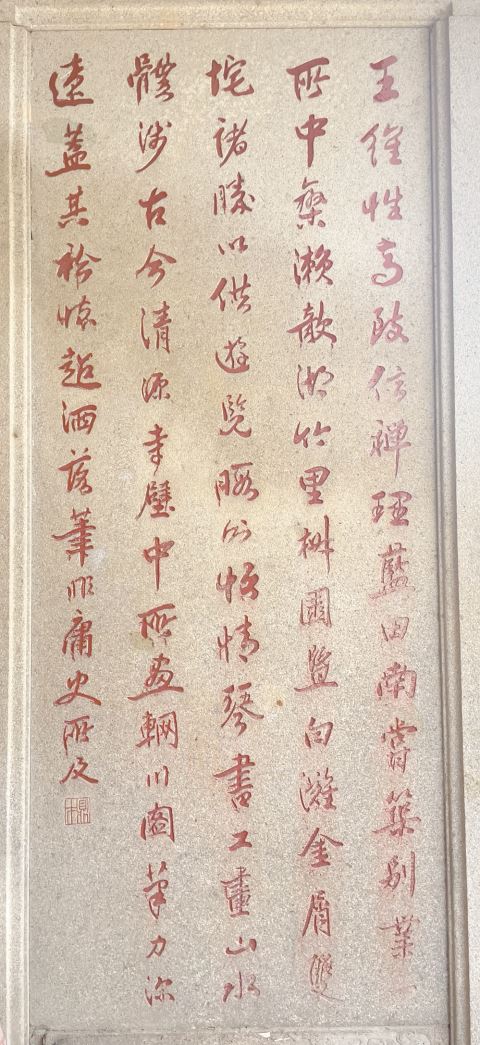 王維性高致信禪理藍田南嘗築別業一
所中桑瀨欹湖竹里桝園暨白灘金屑雙
垞諸勝以供遊覽暇則怡情琴書工畫山水
體涉古今清源寺壁中所畫輞川圖筆力深
遠蓋其衿懷超洒落筆非庸史所及